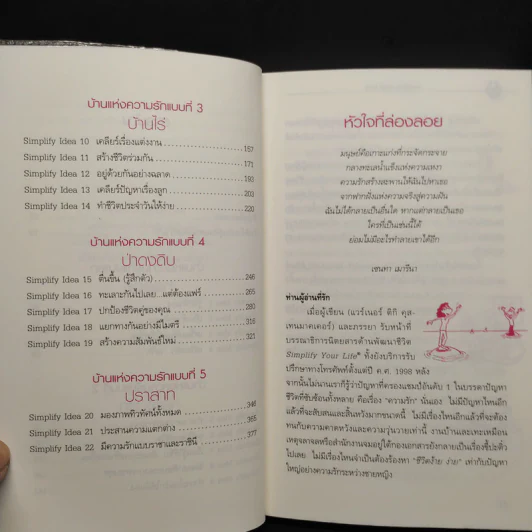 บ้านแห่งความรักแบบที่ 3
บ้านไร่
Simplify Idea 10 เคลียร์เรื่องแต่งงาน 157
Simplify Idea 11 สร้างชีวิตร่วมกัน 171
Simplify Idea 12 อยู่ด้วยกันอย่างฉลาด 193
Simplify Idea 13 เคลียร์ปัญหาเรื่องลูก 203
Simplify Idea 14 ทำชีวิตประจำวันให้ง่าย 220
บ้านแห่งความรักแบบที่ 4
ป่าดงดิบ
Simplify Idea 15 ตื่นขึ้น (รู้สึกตัว) 246
Simplify Idea 16 ทะเลาะกันไปเลย...แต่ต้องแฟร์ 265
Simplify Idea 17 ปกป้องชีวิตคู่ของคุณ 280
Simplify Idea 18 แยกทางกันอย่างมีไมตรี 316
Simplify Idea 19 สร้างความสัมพันธ์ใหม่ 321
บ้านแห่งความรักแบบที่ 5
ปราสาท
Simplify Idea 20 มองภาพทิวทัศน์ทั้งหมด 346
Simplify Idea 21 ประสานความแตกต่าง 365
Simplify Idea 22 มีความรักแบบราชาและราชินี 377
หัวใจที่ล่องลอย
มนุษย์คือเกาะแก่งที่กระจัดกระจาย
กลางทะเลน้ำแข็งแห่งความเหงา
ความรักสร้างสะพานให้ฉันไปหาเธอ
จากฟากฝั่งแห่งความจริงสู่ความฝัน
ฉันไม่ได้กลายเป็นอื่นใด หากแต่กลายเป็นเธอ
ใครที่เป็นเช่นนี้ได้
ย่อมไม่มีอะไรทำลายเขาได้อีก
เซนทา เมารีนา
ท่านผู้อ่านที่รัก
เมื่อผู้เขียน (แวร์เนอร์ ทิกิ คุส-
เทนมาคเตอร์) และภรรยา รับหน้าที่
บรรณาธิการนิตยสารด้านพัฒนาชีวิต
Simplify Your Life® ทั้งยังบริการรับ
ปรึกษาทางโทรศัพท์ตั้งแต่ปี ค.ศ. 1998 หลัง
จากนั้นไม่นานเราก็รู้ว่าปัญหาที่ครองแชมป์อันดับ 1 ในบรรดาปัญหา
ชีวิตที่ซับซ้อนทั้งหลาย คือเรื่อง "ความรัก" นั่นเอง ไม่มีปัญหาไหนอีก
แล้วที่จะสับสนและสิ้นหวังมากขนาดนี้ ไม่มีเรื่องไหนอีกแล้วที่จะต้อง
ทนกับความคาดหวังและความวุ่นวายเท่านี้ งานบ้านและเทะเหมือน
เหตุจลาจลหรือสำนักงานจมอยู่ใต้กองเอกสารยังกลายเป็นเรื่องขี้ปะติ๋ว
ไปเลย ไม่มีเรื่องไหนจำเป็นต้องร้องหา "ชีวิตง้าย ง่าย" เท่ากับปัญหา
ใหญ่อย่างความรักระหว่างชายหญิง